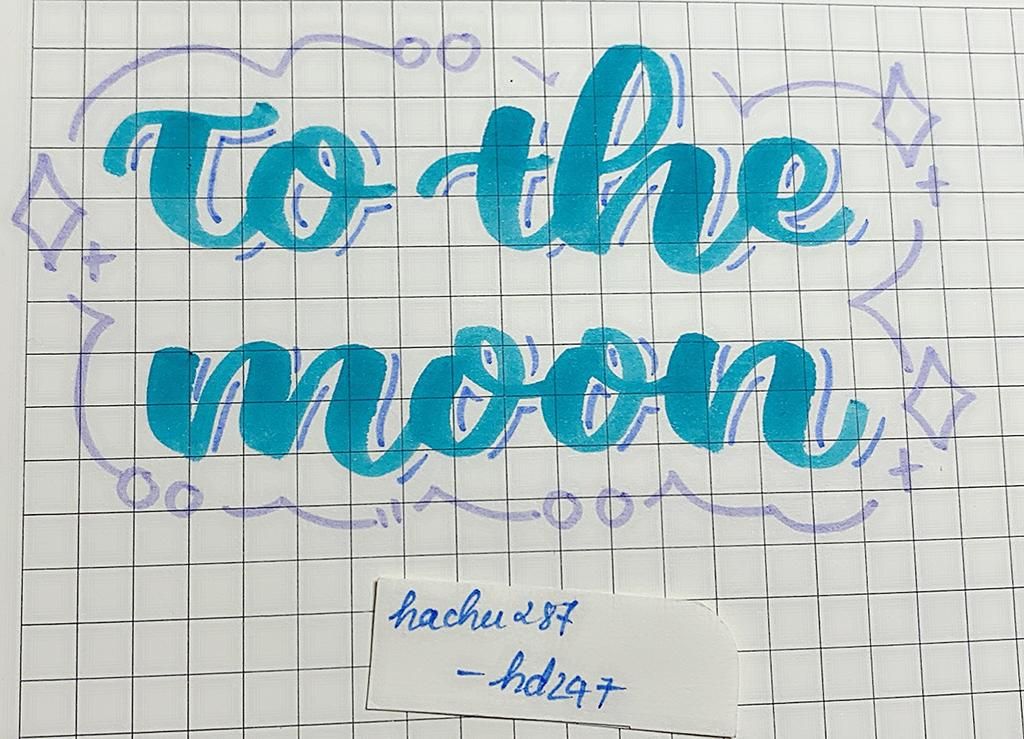 To the
moon
hachu287
-hd247